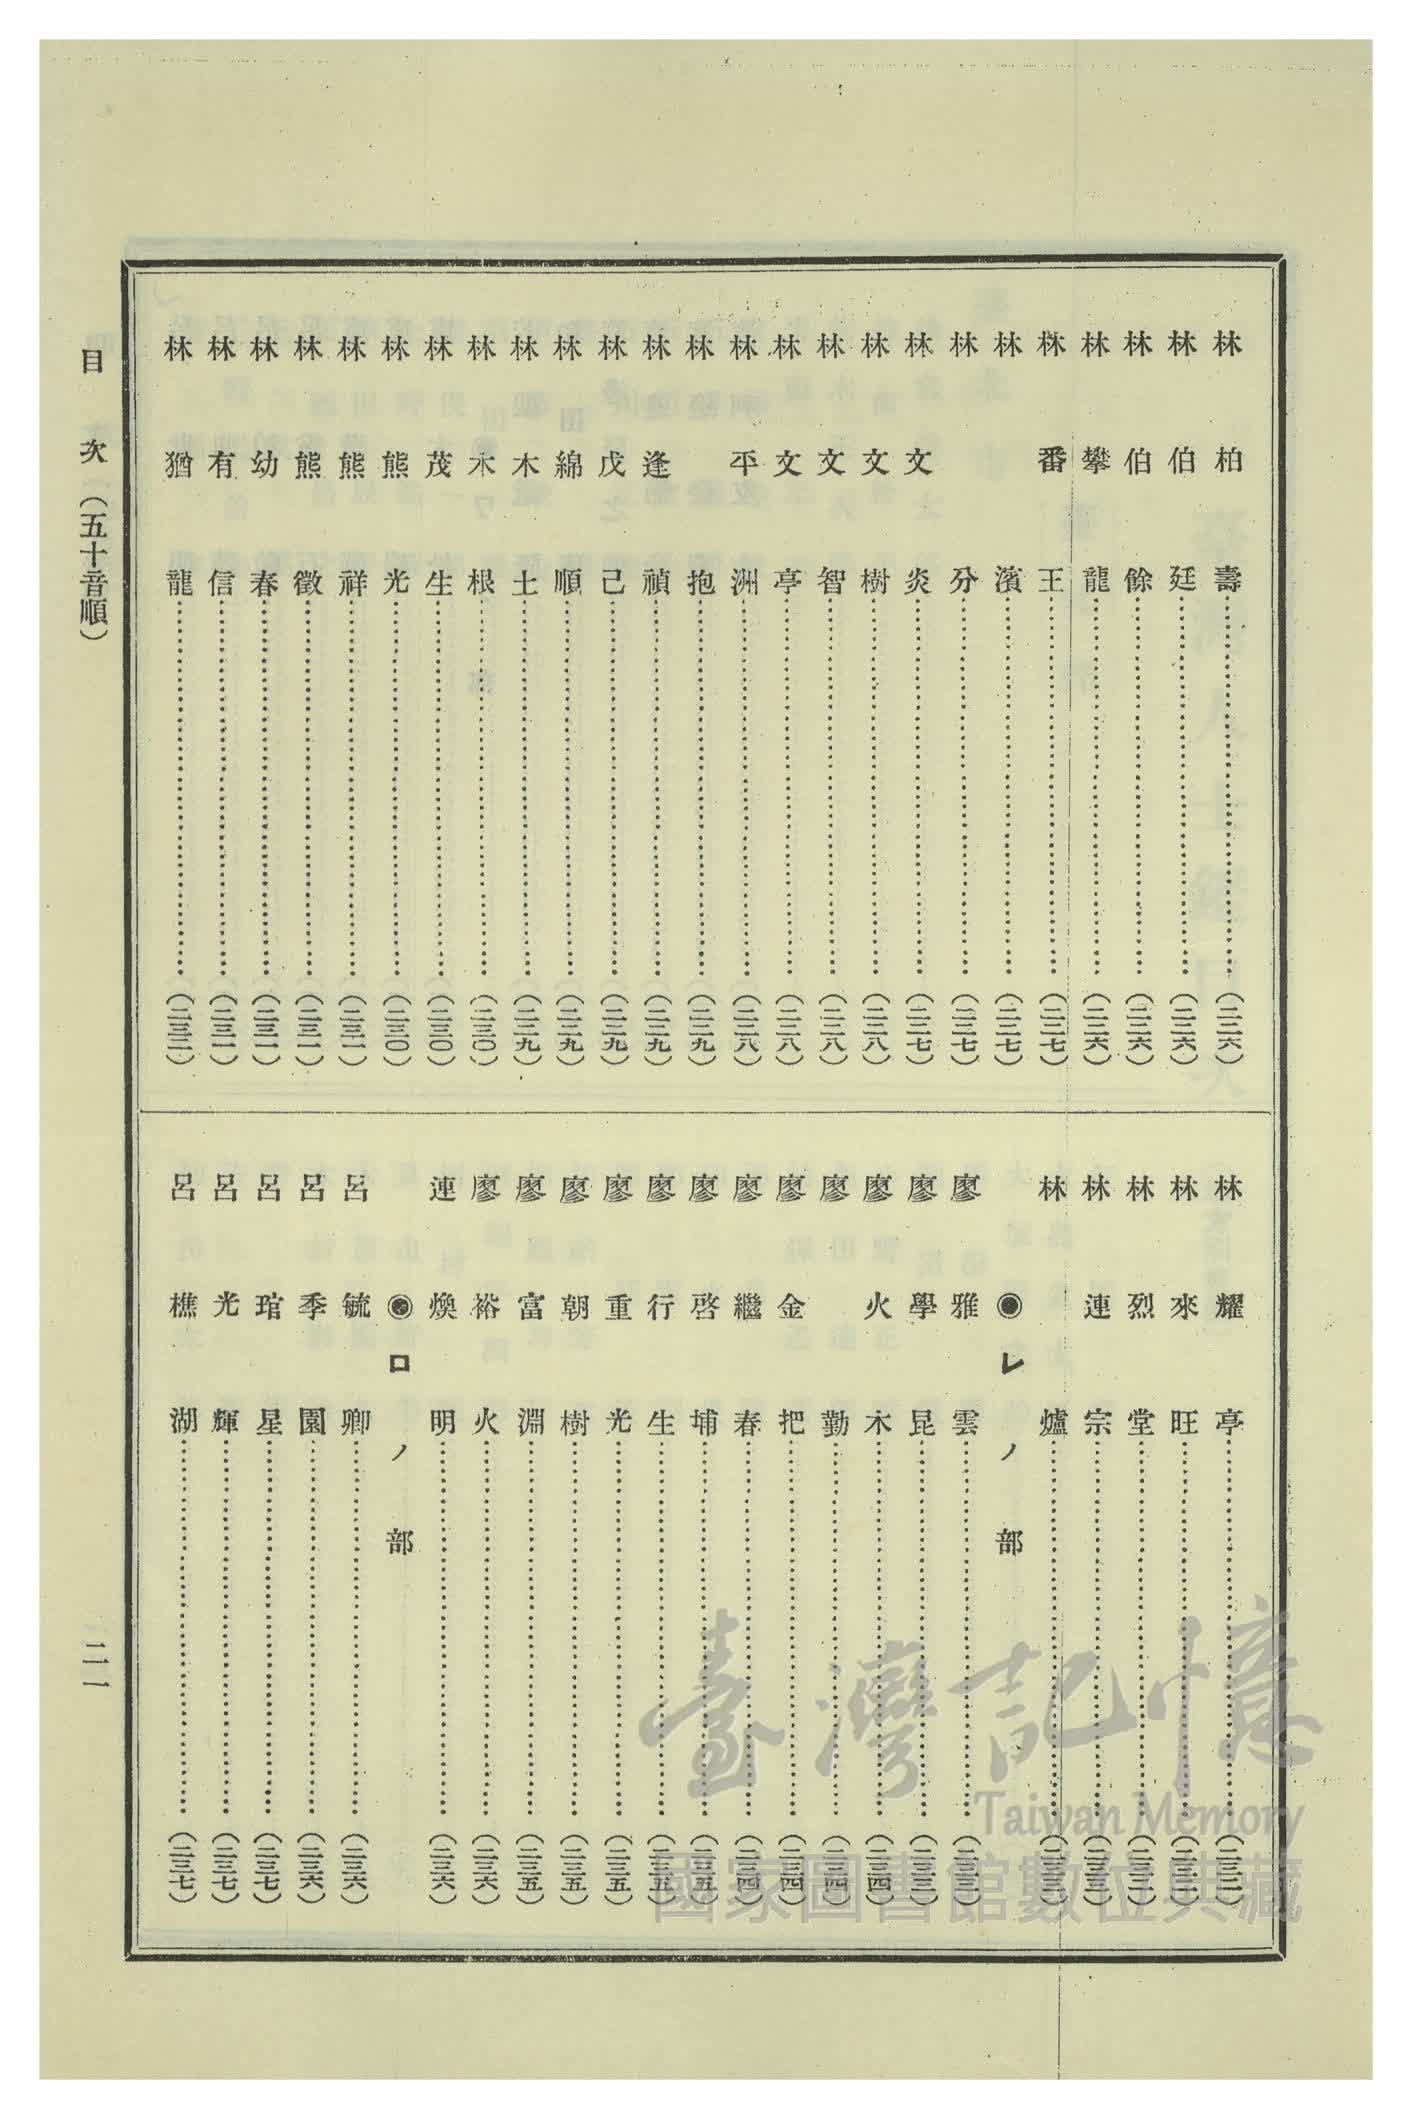 林柏壽……(二二六)
林伯廷……(二二六)
林伯餘……(二二六)
林攀龍……(二二六)
林番王……(二二七)
林濱……(二二七)
林分……(二二七)
林文炎……(二二七)
林文樹……(二二八)
林文智……(二二八)
林文亭……(二二八)
林平洲……(二二八)
林抱……(二二九)
林逢禎……(二二九)
林戊己……(二二九)
林綿順……(二二九)
林木土……(二二九)
林木根……(二三〇)
林茂生……(二三〇)
林熊光……(二三〇)
林熊祥……(二三一)
林熊徵……(二三一)
林幼春……(二三一)
林有信……(二三一)
林猶龍……(二三二)
林耀亭……(二三二)
林來旺……(二三二)
林烈堂……(二三二)
林連宗……(二三三)
林爐……(二三三)
◉レノ部
廖雅雲……(二三三)
廖學昆……(二三三)
廖火木……(二三四)
廖勤……(二三四)
廖金把……(二三四)
廖繼春……(二三四)
廖啓埔……(二三五)
廖行生……(二三五)
廖重光……(二三五)
廖朝樹……(二三五)
廖富淵……(二三五)
廖裕火……(二三六)
連煥明……(二三六)
◉ロノ部
呂毓卿……(二三六)
呂季園……(二三六)
呂琯星……(二三七)
呂光輝……(二三七)
呂樵湖……(二三七)
目次(五十音順)
二一
臺灣記憶
Taiwan Memory
國家圖書館數位典藏